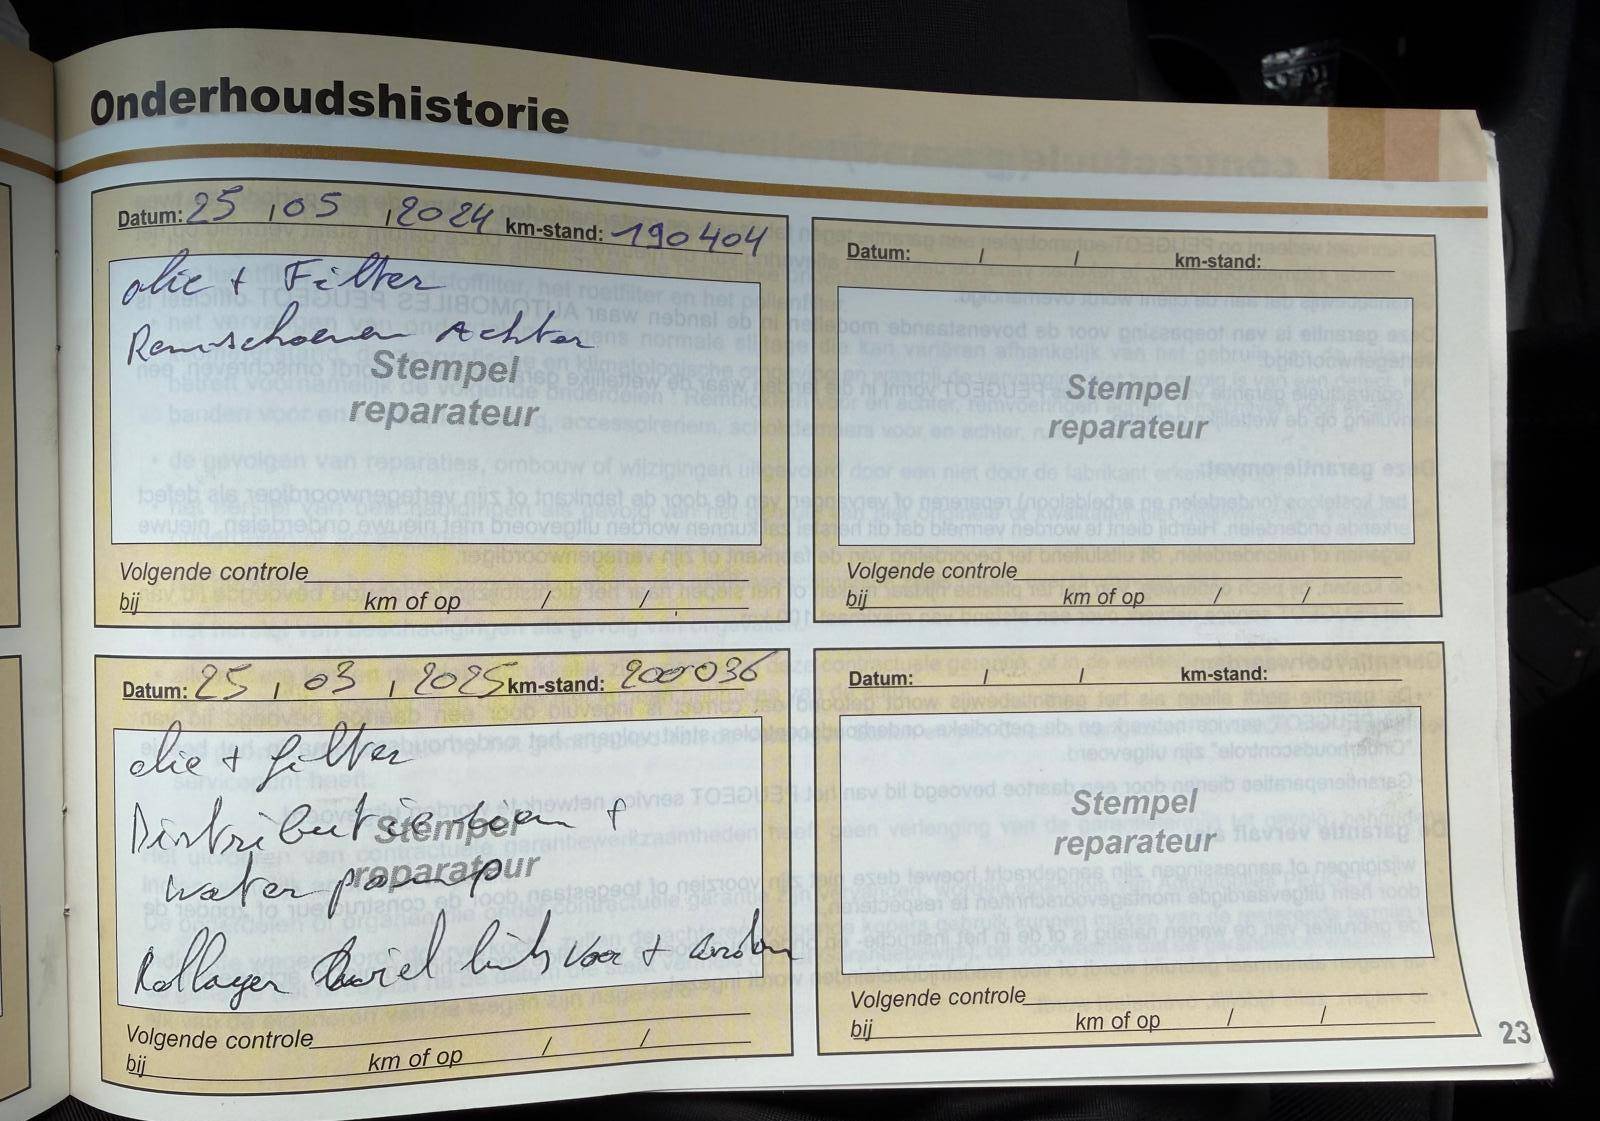 Onderhoudshistorie
Datum: 25 / 05 / 2024 km-stand: 190404
olie + Filter
Remschoenen Achter
Stempel
reparateur
Volgende controle
bij km of op / /
Datum: / / km-stand:
Stempel
reparateur
Volgende controle
bij km of op / /
Datum: 25 / 03 / 2025 km-stand: 200036
olie + filter
Distributieriem +
waterpomp
Stempel
reparateur
Rollager wiel links voor +
Volgende controle
bij km of op / /
Datum: / / km-stand:
Stempel
reparateur
Volgende controle
bij km of op / /
23